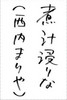 煮汁浸りな
(西内まりや)